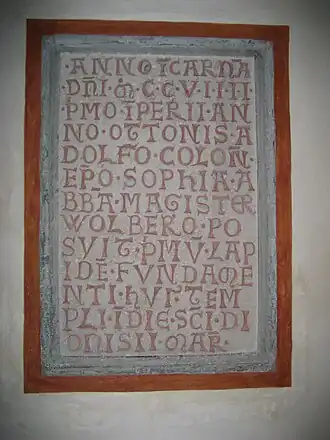 ·ANNO·ĪCARNA̅
DN̅I·M̊·C·C·VIIII·
P̅MO·ĪPERII·AN
NO·OTTONIS·A
DOLFO·COLON̅·
EP̅O·SOPHIA·A
BBA·MAGISTER
WOLBERO·PO
SVIT·P̅MV̅·LAP
IDE̅·FVNDAME
NTI·hVI᾽·TEM
PLI·I·DIE·SC̅I·DI
ONISII·MAR̅·